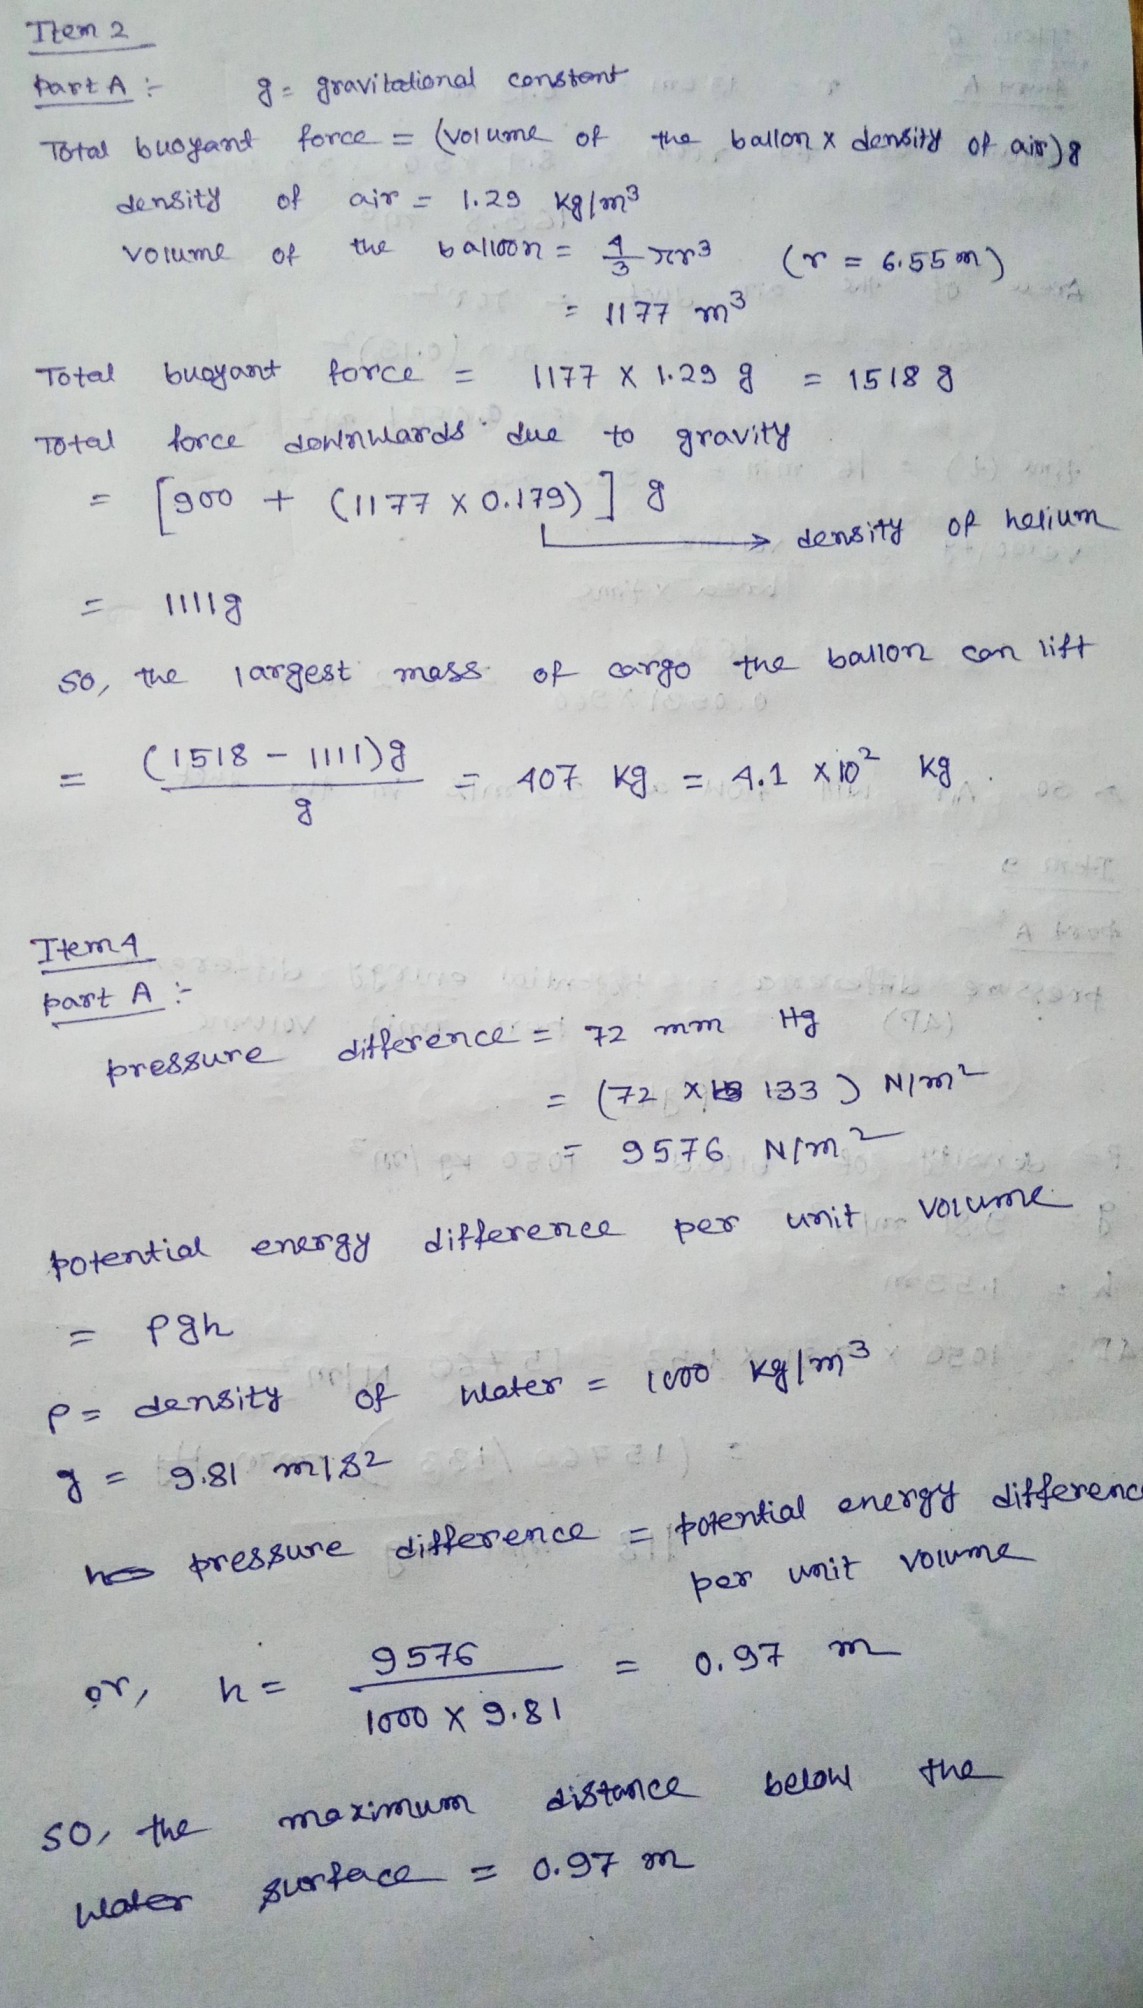 Item 2
Part A :-
g = gravitational constant
Total buoyant force = (volume of the ballon x density of air) g
density of air = 1.29 kg/m³
volume of the balloon = 4/3 πr³ (r = 6.55 m)
= 1177 m³
Total buoyant force = 1177 x 1.29 g = 1518 g
Total force downwards due to gravity
= [900 + (1177 x 0.179)] g
density of helium
= 1111g
So, the largest mass of cargo the ballon can lift
= (1518 - 1111)g / g = 407 kg = 4.1 x 10² kg.
Item 4
Part A :-
pressure difference = 72 mm Hg
= (72 x 133) N/m²
= 9576 N/m²
potential energy difference per unit volume
= ρgh
ρ = density of water = 1000 kg/m³
g = 9.81 m/s²
pressure difference = potential energy differenc
per unit volume
or, h = 9576 / 1000 x 9.81 = 0.97 m
so, the maximum distance below the
water surface = 0.97 m